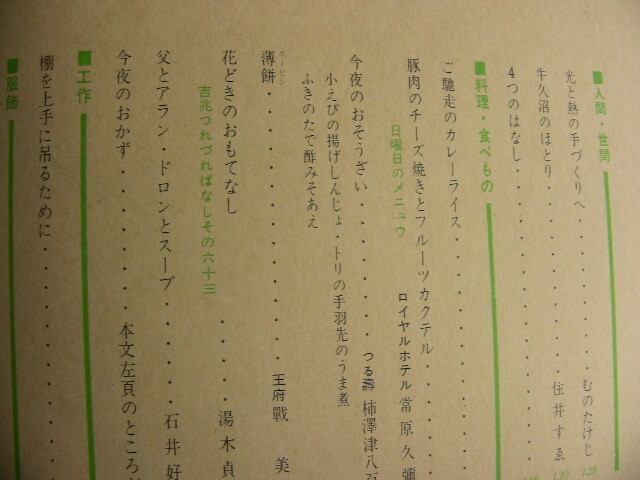 ■人間・世間
光と熱の手づくりへ・・・・・・・・・むのたけじ 128
牛久沼のほとり・・・・・・・・住井すゑ 130
4つのはなし・・・・・・・・・・
■料理・食べもの
ご馳走のカレーライス・・・・・・・・・・
豚肉のチーズ焼きとフルーツカクテル・・・・・・
日曜日のメニュウ ロイヤルホテル 常原久彌
今夜のおそうざい・・・・・・・・つる壽 柿澤津八百
小えびの揚げしんじょ・トリの手羽先のうま煮
ふきのたで酢みそあえ
薄餅・・・・・・・・・・・・・・王府 戰 美
ポーピン
花どきのおもてなし・・・・・湯木貞
吉兆つれづればなしその六十三
父とアラン・ドロンとスープ・・・・・・石井好
今夜のおかず・・・・・・・・・本文左頁のところ
■工作
棚を上手に吊るために・・・・・・・・・・・・
■服飾